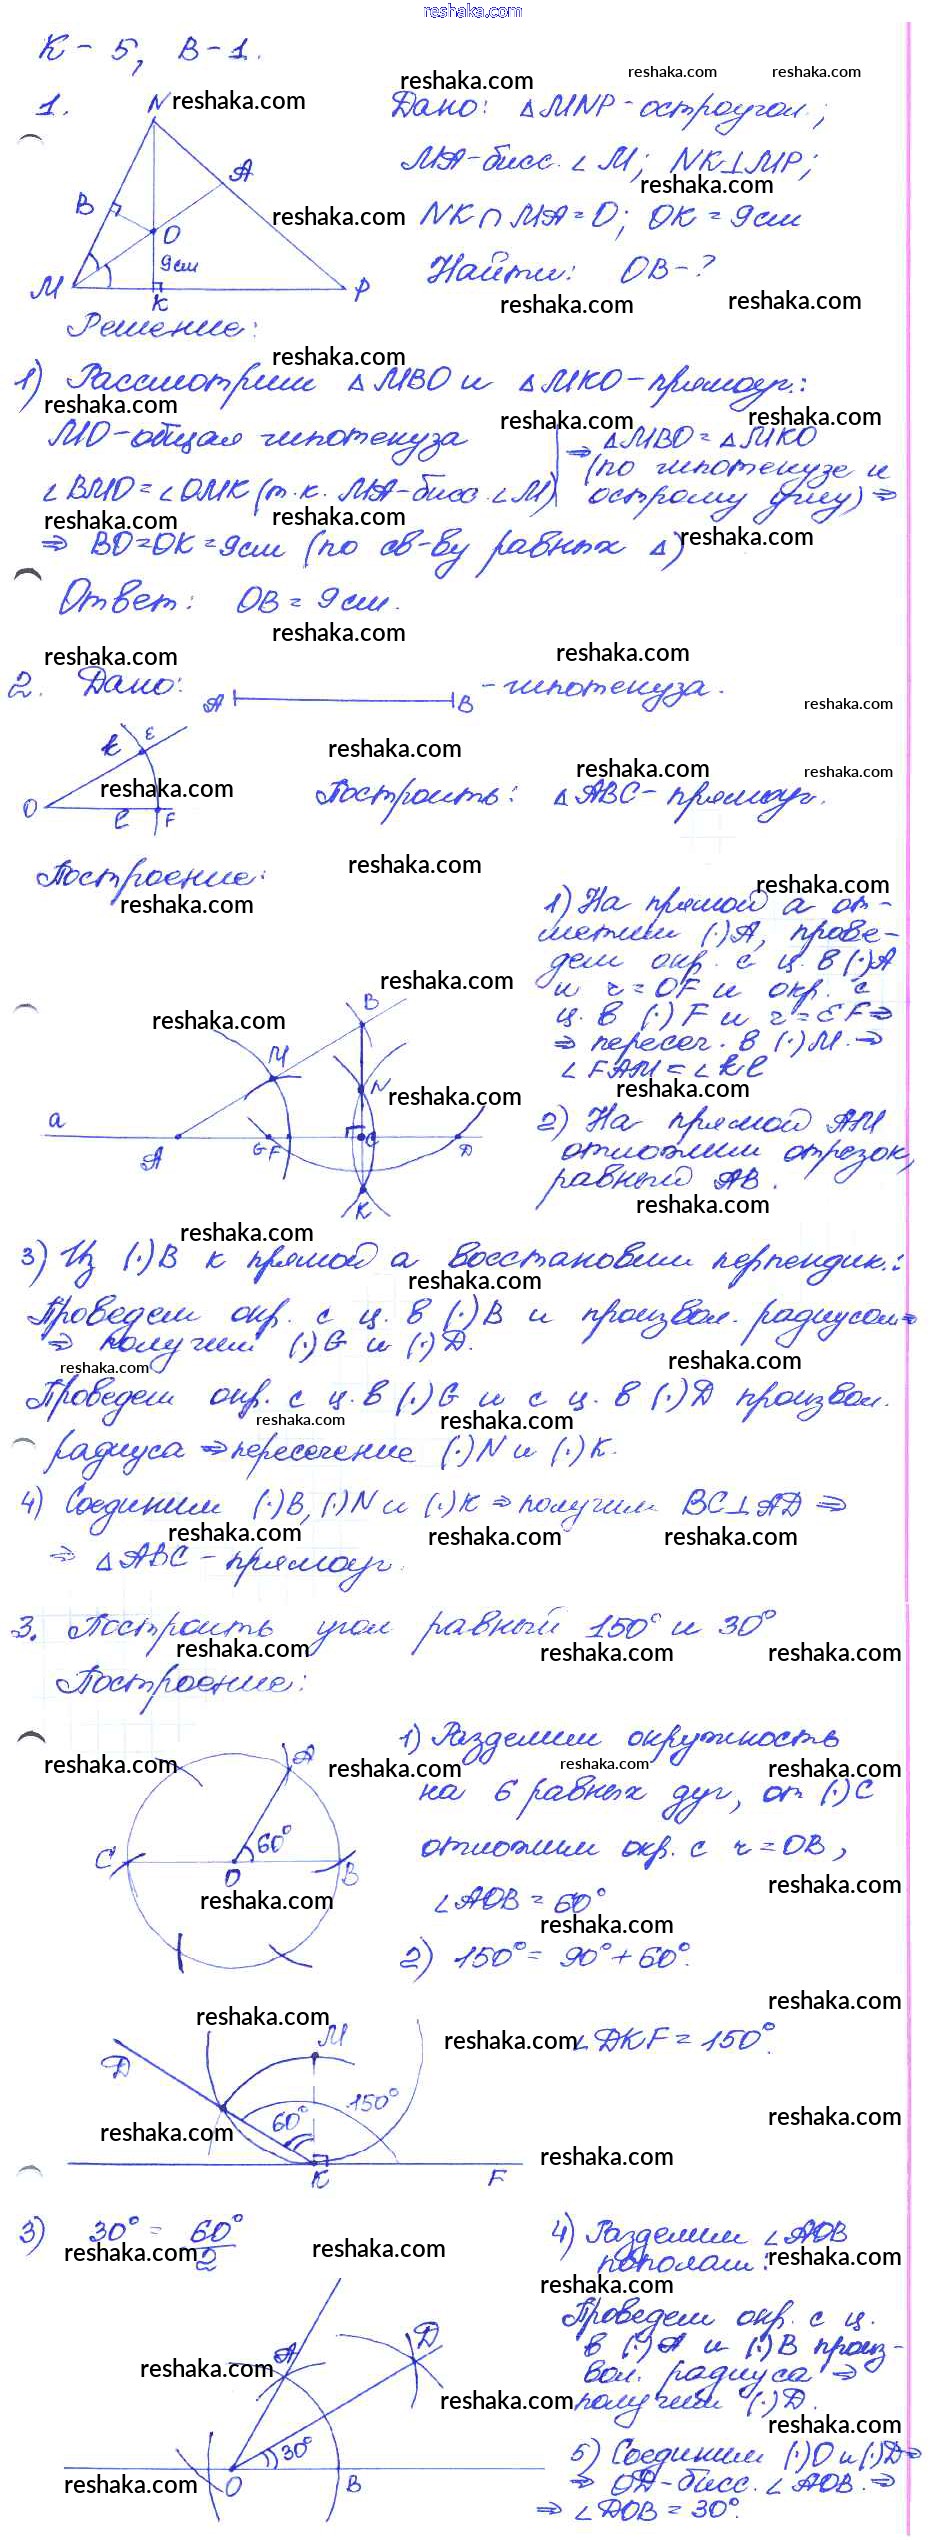 reshaka.com
К-5, В-1.
1. Дано: △MNP-остроугол.;
MA-бисс. ∠M; NK⊥MP;
NK∩MA=O; OK=9см
Найти: OB-?
N
A
B
O
9см
M
K
P
Решение:
1) Рассмотрим △MBO и △MKO-прямоуг.:
MO-общая гипотенуза
∠BMO=∠OMK (т.к. MA-бисс. ∠M)
⇒ △MBO=△MKO
(по гипотенузе и
острому углу) ⇒
⇒ BO=OK=9см (по св-ву равных △)
Ответ: OB=9см.
2. Дано: A B -гипотенуза.
k E
O
l F
Построить: △ABC-прямоуг.
Построение:
1) На прямой a от-
метим (·)A, прове-
дем окр. с ц. в (·)A
и r=OF и окр. с
ц. в (·)F и r=EF⇒
⇒ пересеч. в (·)M.⇒
∠FAM=∠kl
2) На прямой AM
отложим отрезок,
равный AB.
B
M
N
a
A
G F
C
D
K
3) Из (·)B к прямой a восстановим перпендик.:
Проведем окр. с ц. в (·)B и произвол. радиусом⇒
⇒ получим (·)G и (·)D.
Проведем окр. с ц. в (·)G и с ц. в (·)D произвол.
радиуса ⇒ пересечение (·)N и (·)K.
4) Соединим (·)B, (·)N и (·)K ⇒ получим BC⊥AD ⇒
⇒ △ABC-прямоуг.
3. Построить угол равный 150° и 30°
Построение:
1) Разделим окружность
на 6 равных дуг, от (·)C
отложим окр. с r=OB,
∠AOB=60°
2) 150°=90°+60°.
A
60°
C
O
B
∠DKF=150°.
M
D
150°
60°
K
F
3) 30°=60°/2
4) Разделим ∠AOB
пополам:
Проведем окр. с ц.
в (·)A и (·)B произ-
вол. радиуса ⇒
получим (·)D.
5) Соединим (·)O и (·)D⇒
⇒ OD-бисс. ∠AOB.⇒
⇒ ∠DOB=30°.
A
D
30°
O
B
reshaka.com